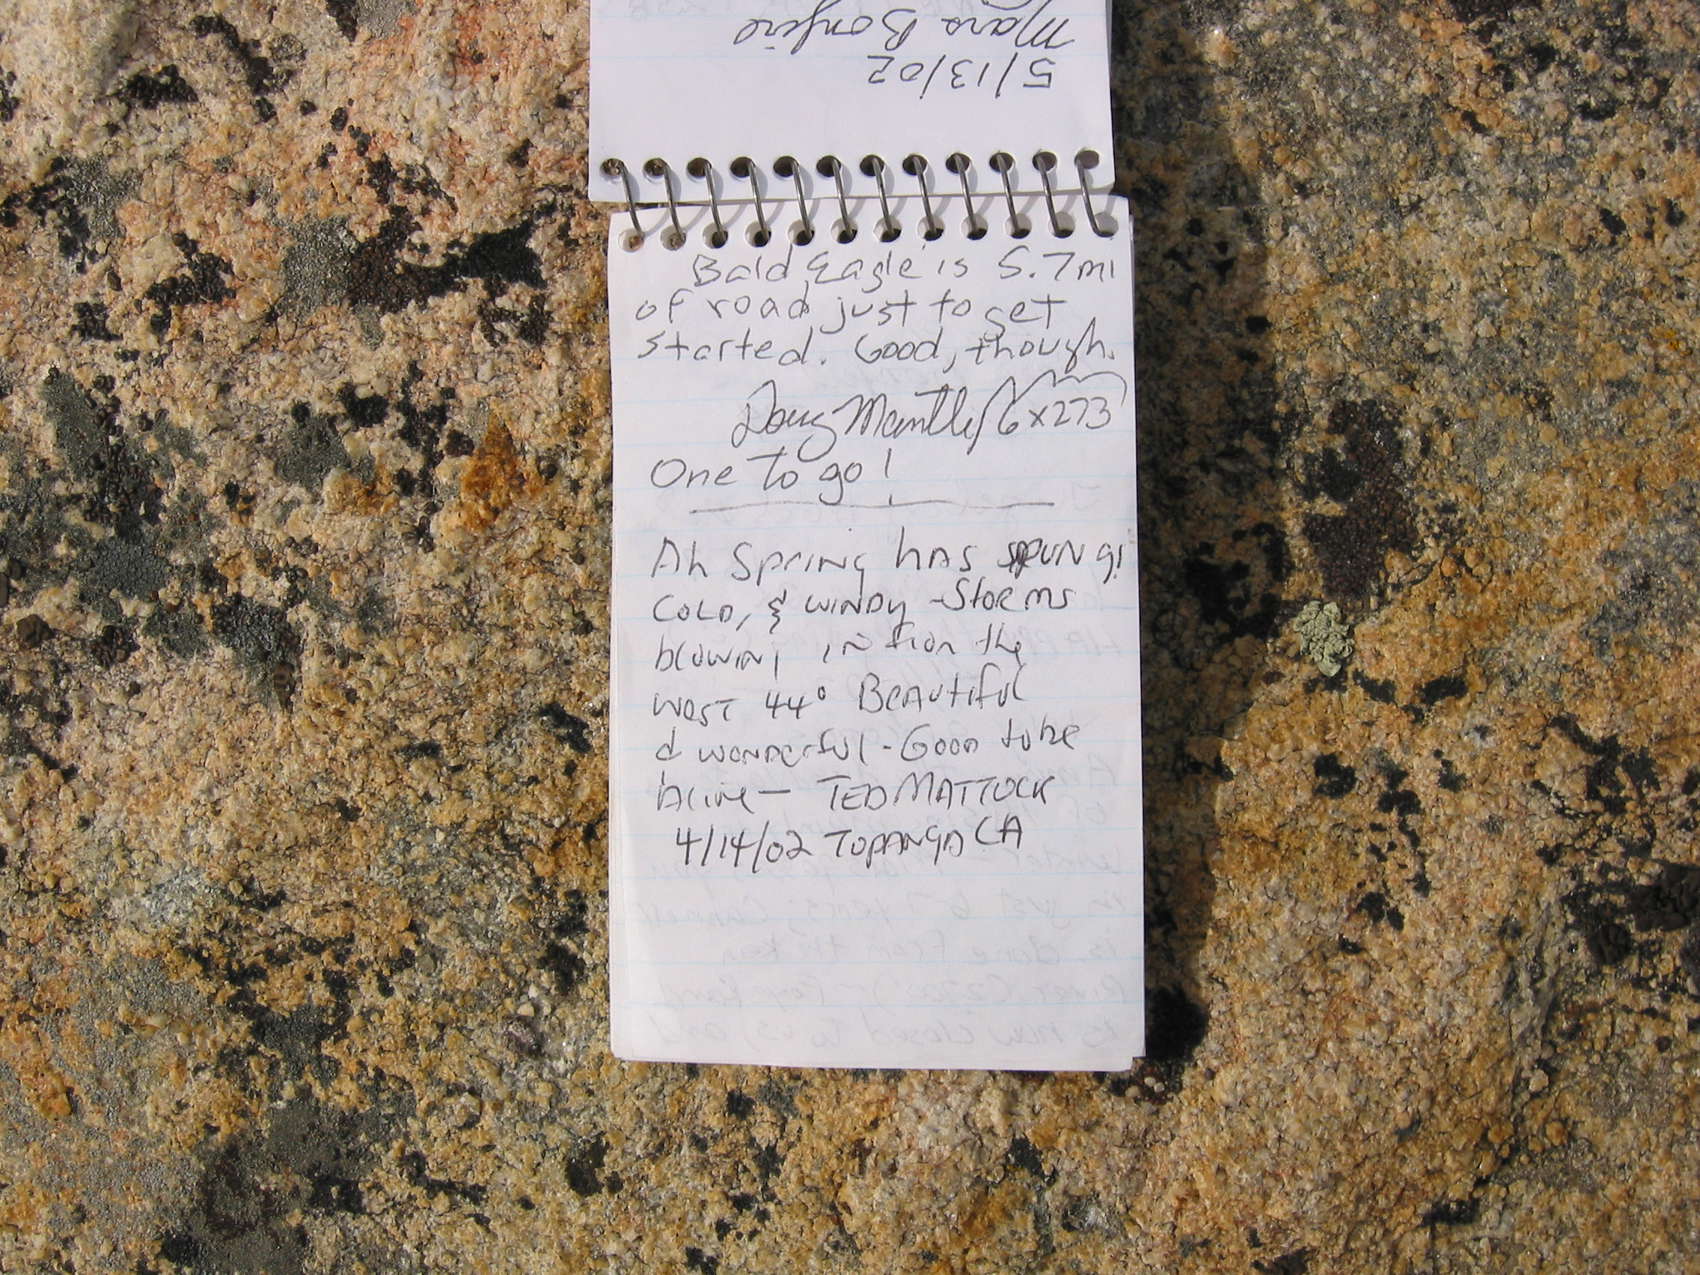 5/13/02
Mars Bonfire
Bald Eagle is 5.7mi
of road just to get
started. Good, though.
Doug Mantle 6x273
One to go!
Ah Spring has sprung!
Cold, & windy - Storms
blowing in from the
west 44° Beautiful
& wonderful - Good to be
alive - TED MATTOCK
4/14/02 TOPANGA CA